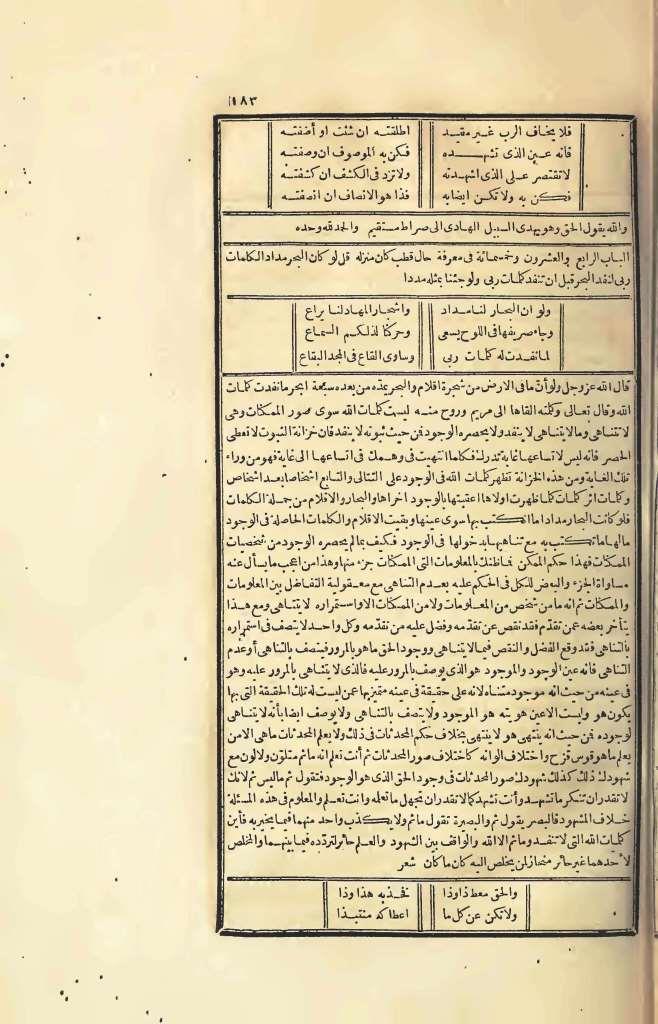 ١٨٣
فلا يخاف الرب غير مقيد اطلقته ان شئت او أضفته
فانه عين الذى تشهده فكن به الموصوف ان وصفته
ولا تقتصر على الذى اشهدته ولا تزد فى الكشف ان كشفته
فكن به ولا تكن ايضا به فذا هو الانصاف ان انصفته
والله يقول الحق وهو يهدى السبيل الهادى الى صراط مستقيم والحمد لله وحده
الباب الرابع والعشرون وخمسمائة فى معرفة حال قطب كان منزله قل لو كان البحر مدادا لكلمات
ربى لنفد البحر قبل ان تنفد كلمات ربى ولو جئنا بمثله مددا
ولو ان البحار لنا مداد واشجار المهاد لنا يراع
وجاء صريفها فى اللوح يسعى وحركنا لذلكم السماع
لما نفدت له كلمات ربى وساوى القاع فى المجد البقاع
قال الله عز وجل ولو أن ما فى الارض من شجرة اقلام والبحر يمده من بعده سبعة ابحر ما نفدت كلمات
الله وقال تعالى وكلمته القاها الى مريم وروح منه ليست كلمات الله سوى صور الممكنات وهى
لا تتناهى وما لا يتناهى لا ينفد ولا يحصره الوجود فمن حيث ثبوته لا ينفد فان خزانة الثبوت لا تعطى
الحصر فانه ليس لاتساعها غاية تدرك فكلما انتهيت فى وهمك فى اتساعها الى غاية فهو من وراء
تلك الغاية ومن هذه الخزانة تظهر كلمات الله فى الوجود على التتالى والتتابع اشخاصا بعد اشخاص
وكلمات اثر كلمات كلما ظهرت اولاها اعقبتها بالوجود اخراها والبحار والاقلام من جملة الكلمات
فلو كانت البحار مدادا ما انكتب بها سوى عينها وبقيت الاقلام والكلمات الحاصلة فى الوجود
ما لها ما تكتب به مع تناهيها بدخولها فى الوجود فكيف بما لم يحصره الوجود من شخصيات
الممكنات فهذا حكم الممكن فما ظنك بالمعلومات التى الممكنات جزء منها وهذا من اعجب ما يسأل عنه
مساواة الجزء والبعض للكل فى الحكم عليه بعدم التناهى مع معقولية التفاضل بين المعلومات
والممكنات ثم انه ما من شخص من المعلومات ولا من الممكنات الا واستمراره لا يتناهى ومع هذا
يتأخر بعضه عمن تقدم فقد نقص عن تقدمه وفضل عليه من تقدمه وكل واحد لا يتصف فى استمراره
بالتناهى فقد وقع الفضل والنقص فيما لا يتناهى ووجود الحق ما هو بالمرور فيتصف بالتناهى أو عدم
التناهى فانه عين الوجود والموجود هو الذى يوصف بالمرور عليه فالذى لا يتناهى بالمرور عليه وهو
فى عينه من حيث انه موجود متناه لانه على حقيقة فى عينه متميز بها عن ليست له تلك الحقيقة التى بها
يكون هو وليست الا عين هويته هو الموجود ولا يتصف بالتناهى ولا يوصف ايضا بأنه لا يتناهى
لوجوده فمن حيث انه ينتهى هو لا ينتهى بخلاف حكم المحدثات فى ذلك ولا يعلم المحدثات ما هى الا من
يعلم ما هو قوس قزح واختلاف الوانه كاختلاف صور المحدثات ثم أنت تعلم انه ما ثم متلون ولا لون مع
شهودك ذلك كذلك شهودك صور المحدثات فى وجود الحق الذى هو الوجود فتقول ثم ما ليس ثم لانك
لا تقدر ان تنكر ما تشهد وأنت تشهد كما لا تقدر ان تجهل ما تعلمه وانت تعلم والمعلوم فى هذه المسئلة
خلاف المشهود فالبصر يقول ثم والبصيرة تقول ما ثم ولا يكذب واحد منهما فيما يخبر به فأين
كلمات الله التى لا تنفد وما ثم الا الله والواقف بين الشهود والعلم حائر لتردده فيما بينهما والمخلص
لاحدهما غير حائر منحاز لمن يخلص اليه كان ما كان شعر
والحق معط ذا وذا فخذ به هذا وذا
ولا تكن عن كل ما اعطاكه منتبذا